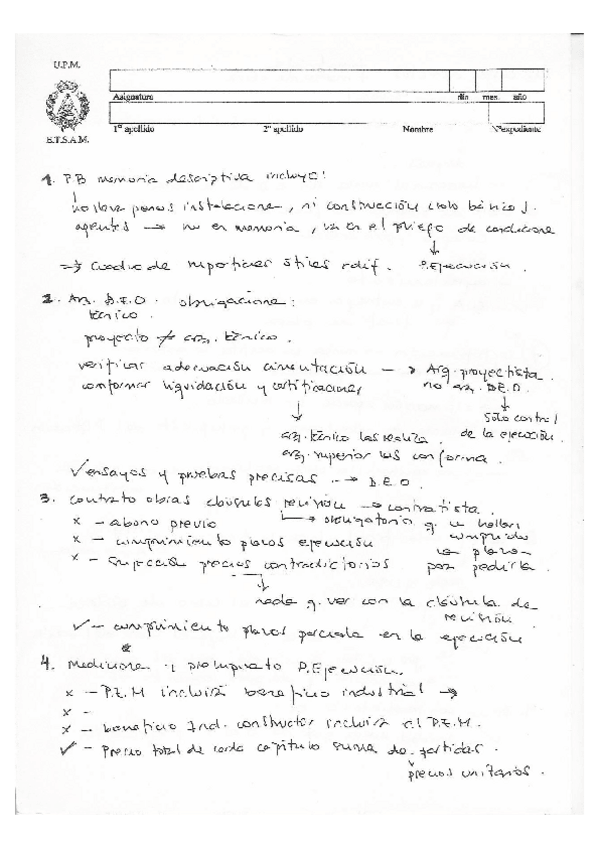 U.P.M.
E.T.S.A.M.
Asignatura día mes año
1º apellido 2º apellido Nombre Nºexpediente
1. PB memoria descriptiva incluye:
no lleva planos instalaciones, ni construcción (solo básicos).
agentes → no en memoria, va en el pliego de condiciones
⇒ cuadro de superficies útiles y edif. P. Ejecución.
2. Arq. D.E.O. obligaciones:
técnico.
proyecto ≠ arq. técnico.
verificar adecuación cimentación → Arq. proyectista.
conformar liquidación y certificaciones no arq. D.E.O.
Sólo control
arq. técnico las realiza. de la ejecución.
arq. superior las conforma.
✓ ensayos y pruebas precisas → D.E.O.
3. contrato obras cláusulas revisión → contratista.
x - abono previo → obligatorio q. se hallan
x - cumplimiento plazos ejecución cumplido
x - precios contradictorios los plazos
por pedirla.
nada q. ver con la cláusula de
revisión
✓ - cumplimiento plazos parciales en la ejecución
4. Mediciones y presupuesto P. Ejecución.
x - P.E.M incluirá beneficio industrial →
x -
x - beneficio Ind. constructor incluirá el P.E.M.
✓ - Precio total de cada capítulo suma de partidas.
precios unitarios.